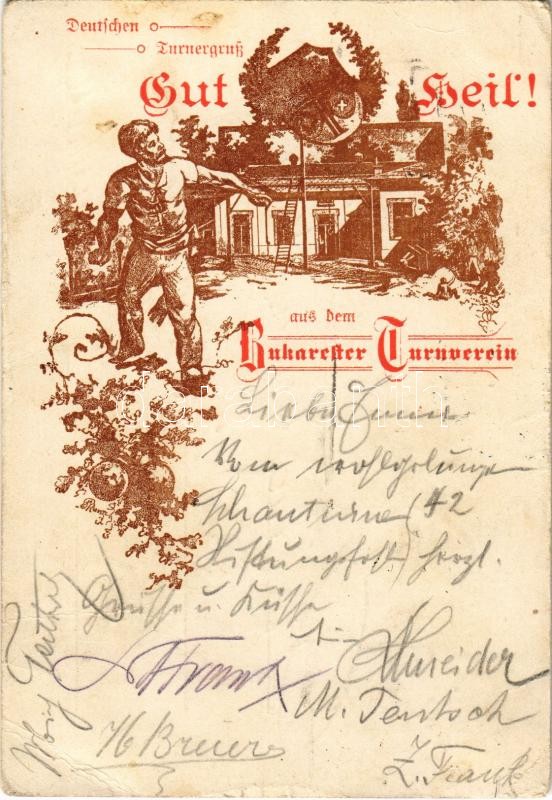 Deutschen
Turnergruß
Gut Heil!
aus dem
Bukarester Turnverein
Liebe
Vom wohlgelungenen
Schauturnen (42
Stiftungsfest) herzl.
Grüsse u. Küsse
Schneider
Frank
M. Teutsch
H Breuer
Z. Frank